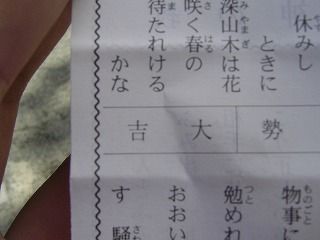 休みし
ときに
深山木は花
咲く春の
待たれける
かな
勢
大吉
物事に
勉めれ
おおい
す 騒